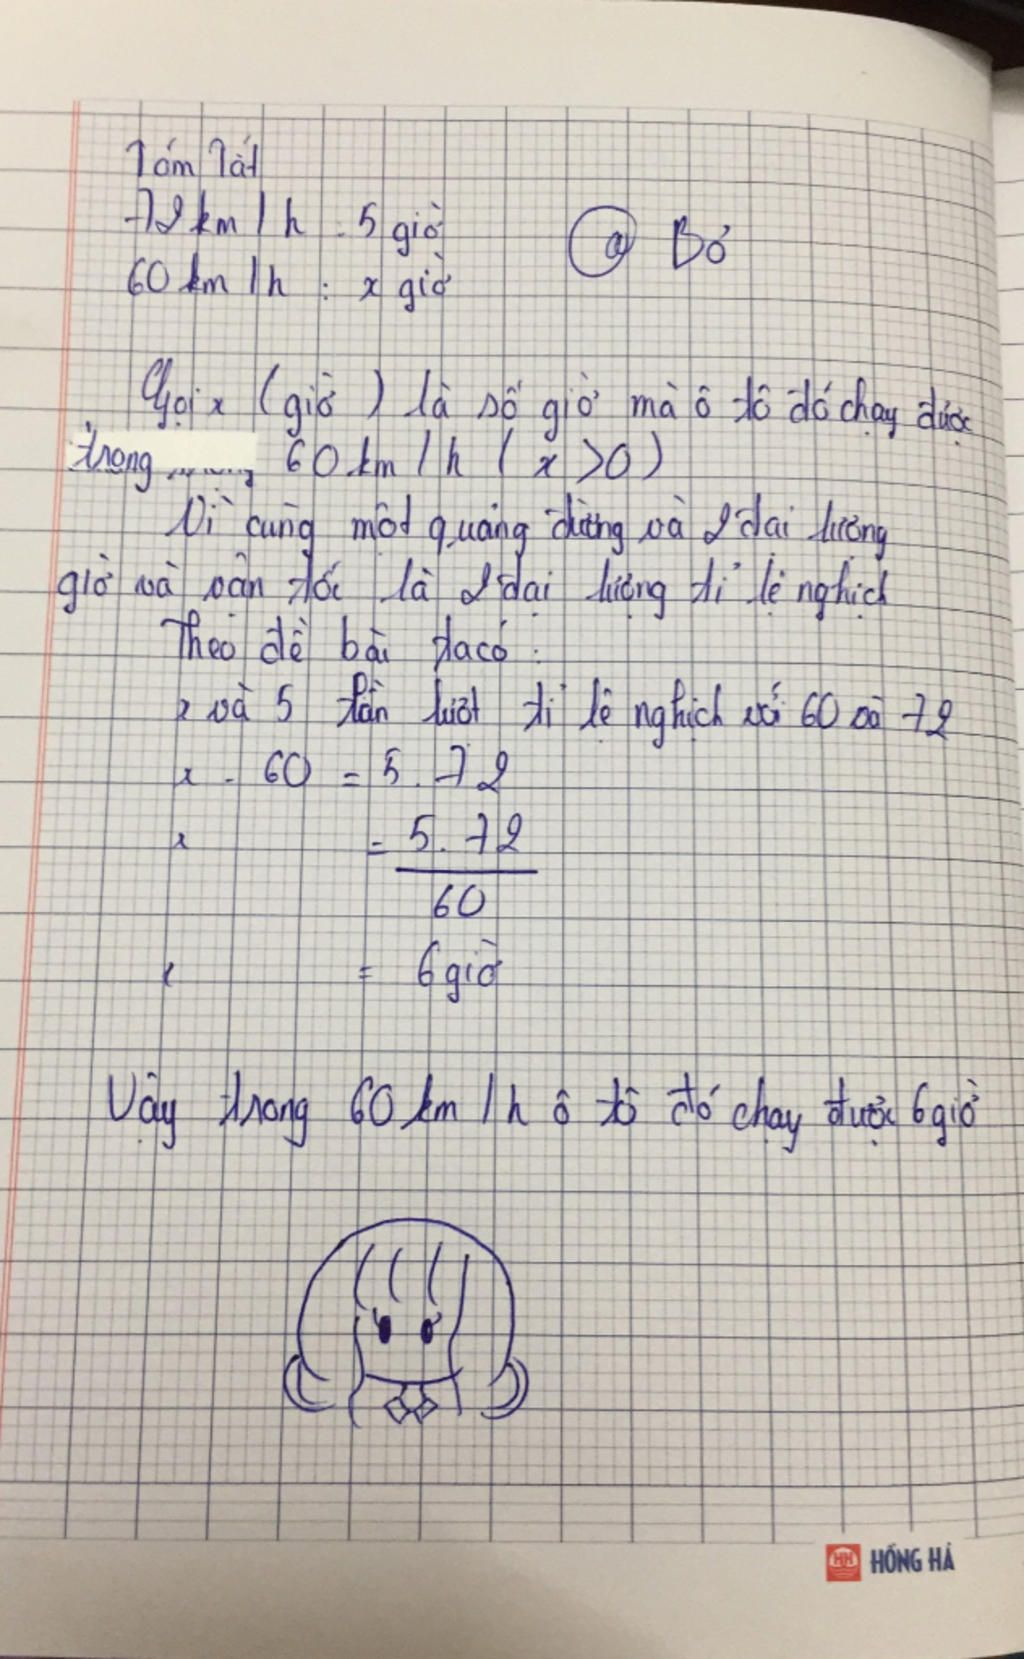 Tóm Tắt
72 km/h : 5 giờ
@ Bỏ
60 km/h : x giờ
Gọi x (giờ) là số giờ mà ô tô đó chạy được
trong 60 km/h (x >0)
Vì cùng một quảng đường và 2 đai lương
giờ và vận tốc là 2 đại lượng tỉ lệ nghịch
Theo đề bài ta có :
x và 5 lần lượt tỉ lệ nghịch với 60 và 72
x . 60 = 5 . 72
x = 5. 72
60
x = 6 giờ
Vậy trong 60 km/h ô tô đó chạy được 6 giờ
HH HỒNG HÀ